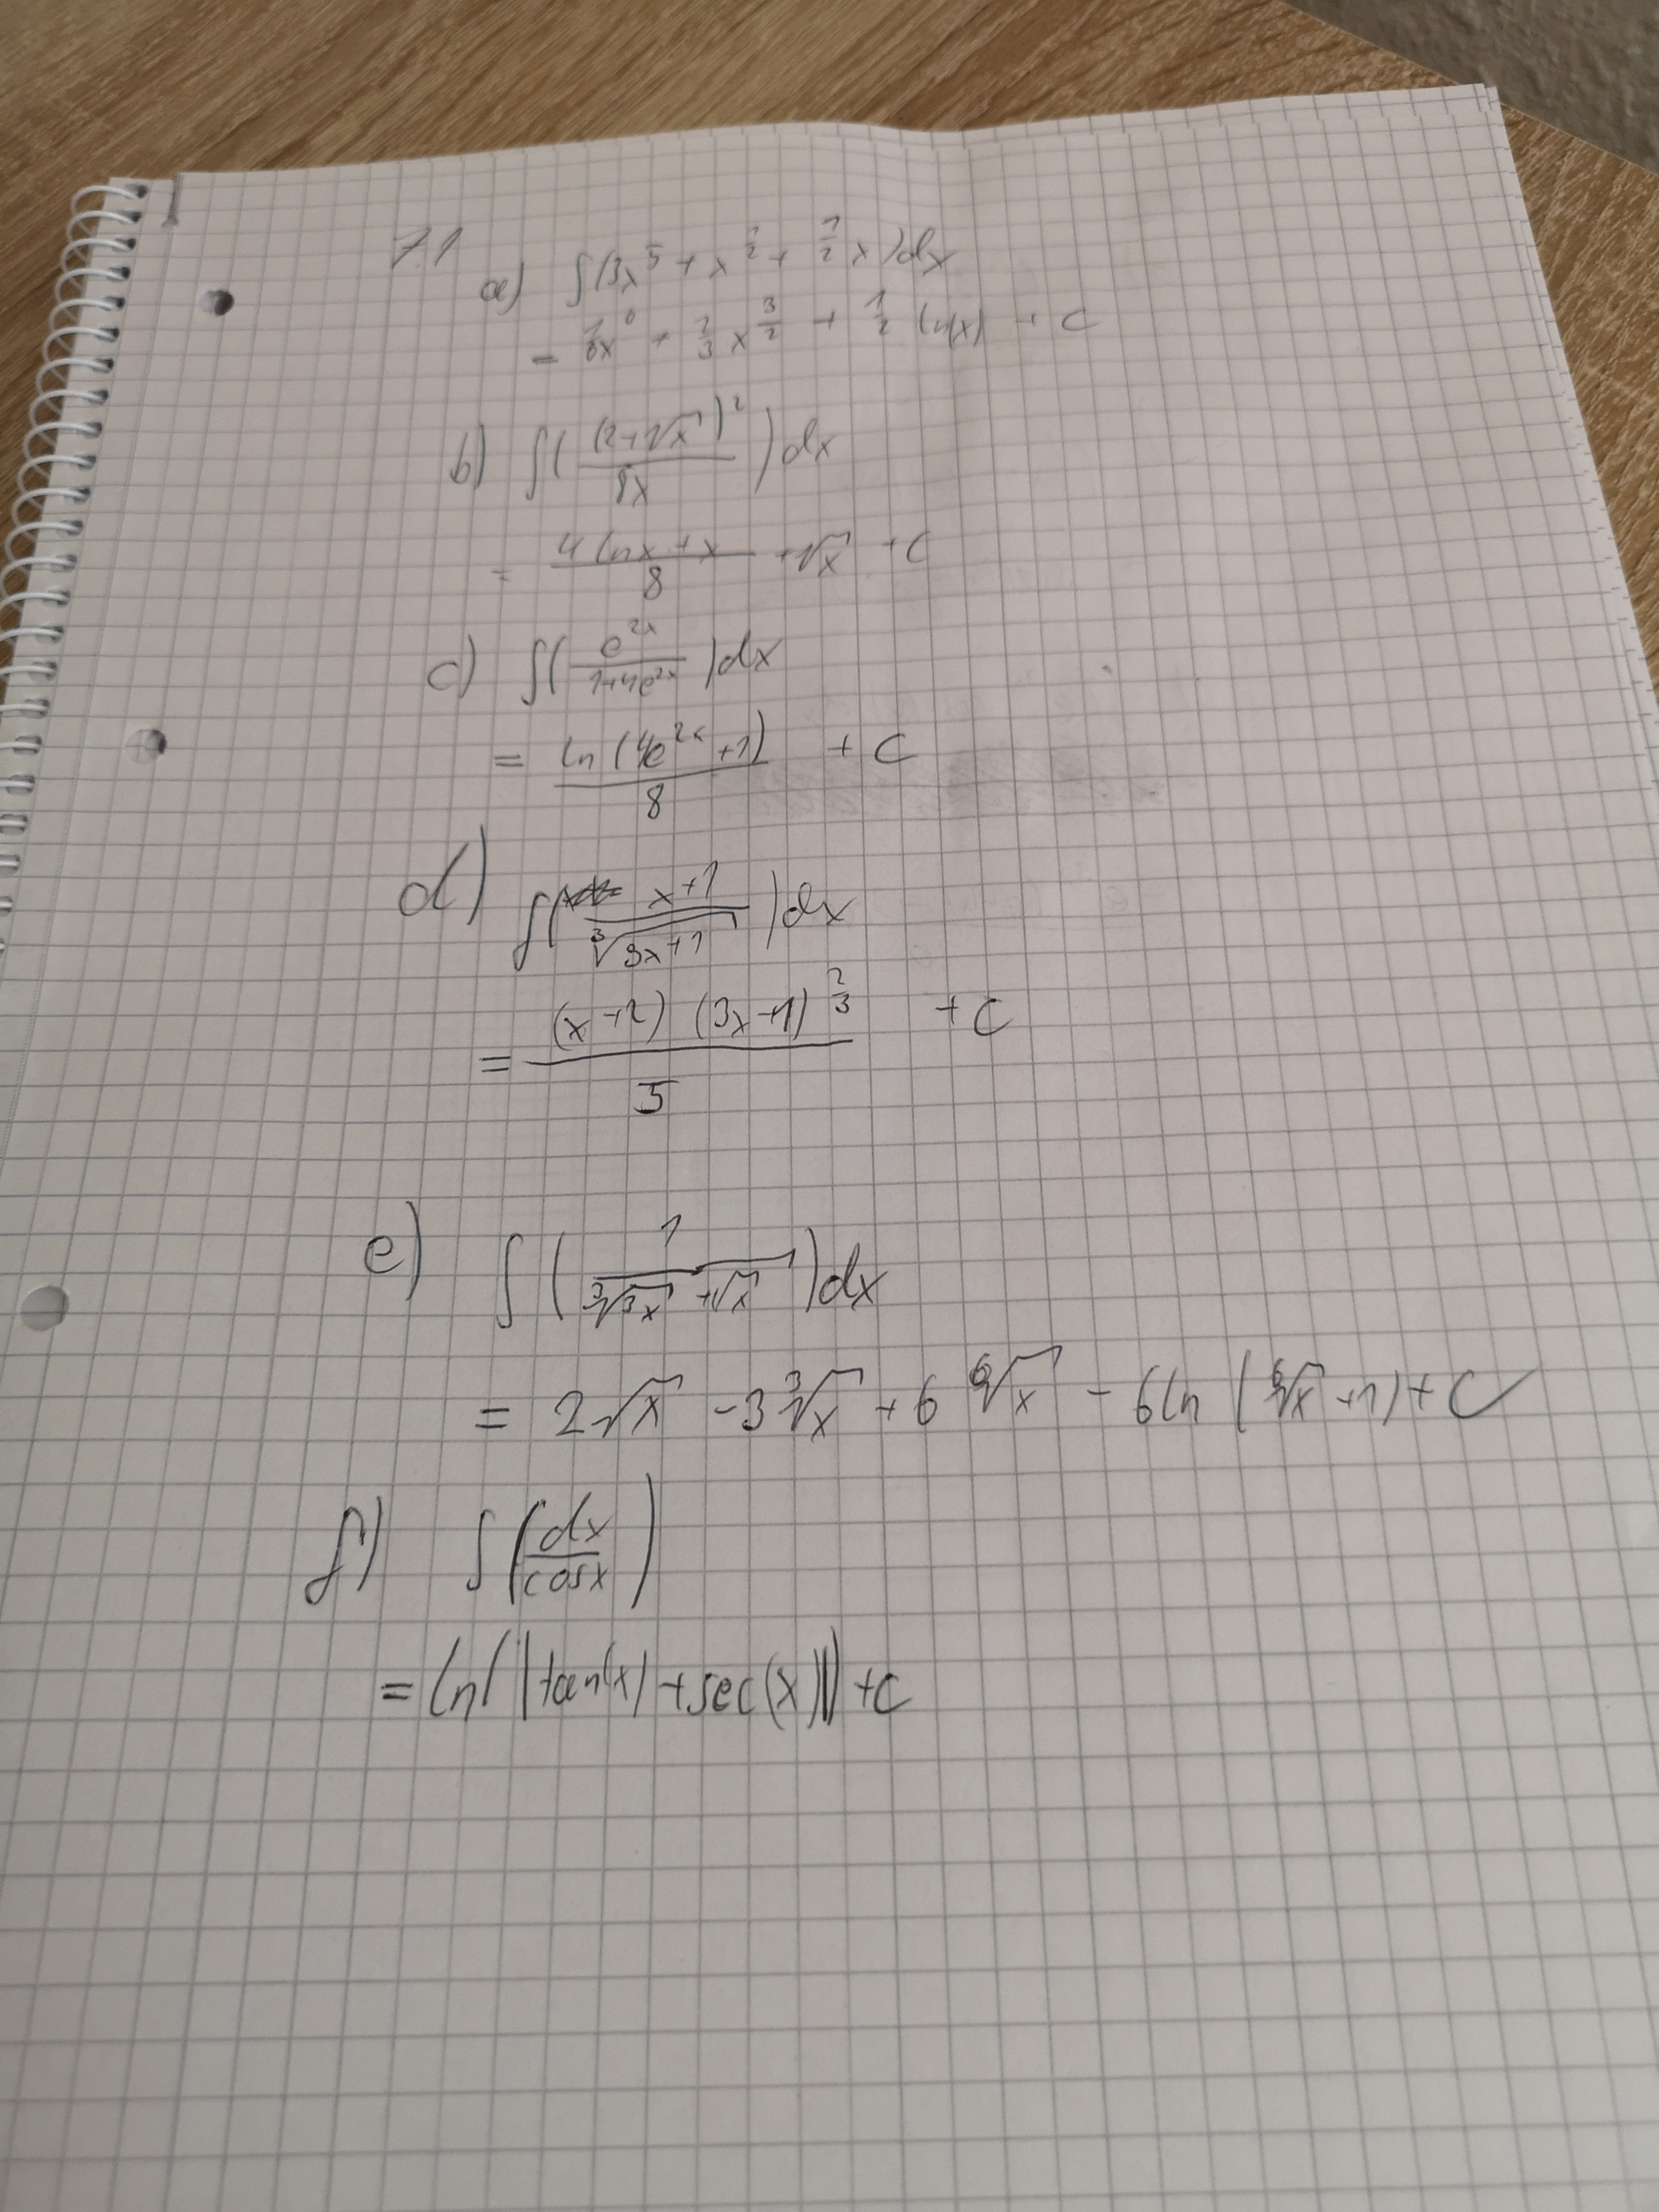 7.1
a) ∫(3x^5 + x^{1/2} + 1/2 x)dx
= x^6 + 2/3 x^{3/2} + 1/2 ln(x) + C
b) ∫((2+√x)^2 / 8x)dx
= (4 ln x + x)/8 + √x + C
c) ∫(e^{2x} / 1+4e^{2x})dx
= ln(4e^{2x}+1)/8 + C
d) ∫(x+1 / ∛(3x+1))dx
= (x+2)(3x+1)^{2/3} / 5 + C
e) ∫(1 / ∛3x + √x)dx
= 2√x - 3∛x + 6 ⁶√x - 6ln(⁶√x + 1) + C
f) ∫(dx / cosx)
= ln(|tan(x) + sec(x)|) + C